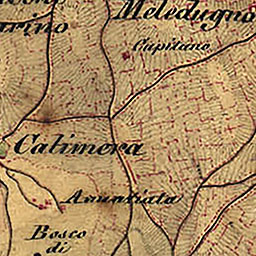 Meledugno
Capitano
Calimera
Anuntiata
Bosco
di